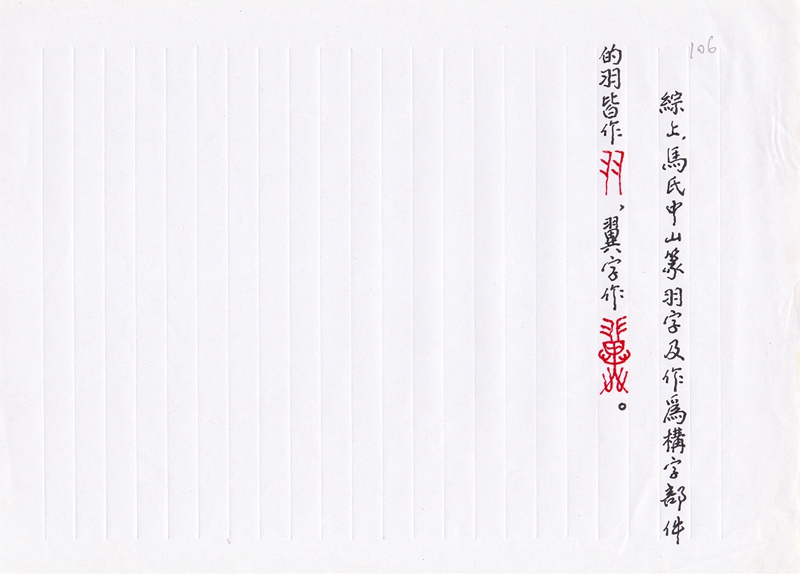 106
綜上，馬氏中山篆羽字及作爲構字部件
的羽皆作羽，翼字作翼。